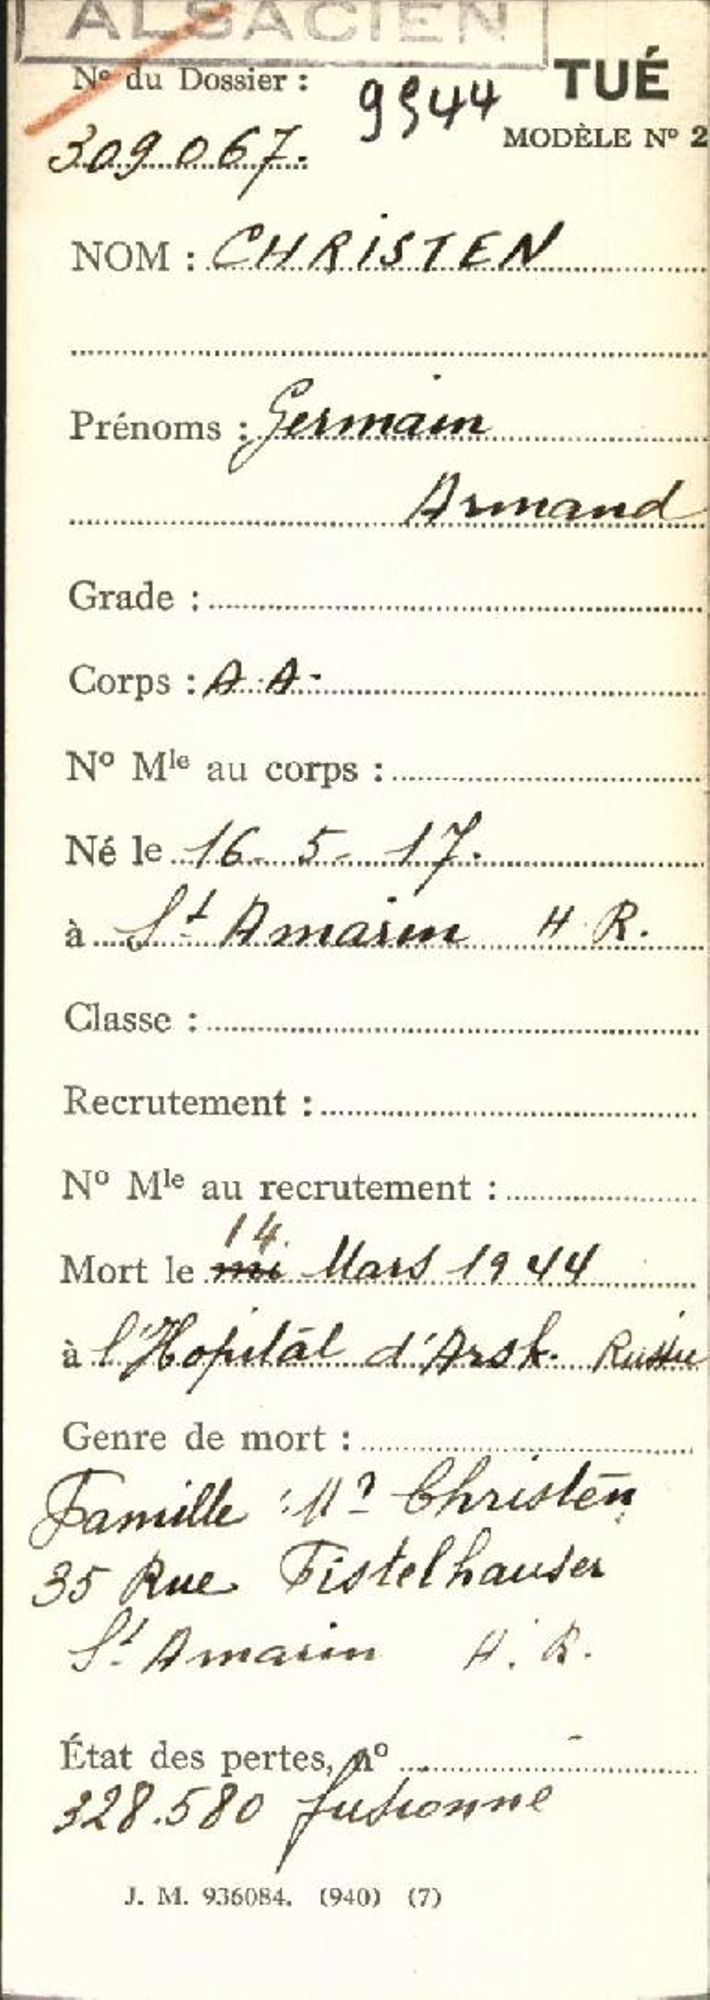 ALSACIEN
N° du Dossier : 9944 TUÉ
MODÈLE N° 2
309067.
NOM : CHRISTEN
Prénoms : Germain
Armand
Grade :
Corps : A.A.
N° Mle au corps :
Né le 16-5-17.
à St Amarin H.R.
Classe :
Recrutement :
N° Mle au recrutement :
14.
Mort le mi Mars 1944
à l'Hopital d'Arsk. Russie
Genre de mort :
Famille : Mr Christen
35 Rue Fistelhauser
St Amarin H.R.
État des pertes, n°
328.580 fusionne
J. M. 936084. (940) (7)